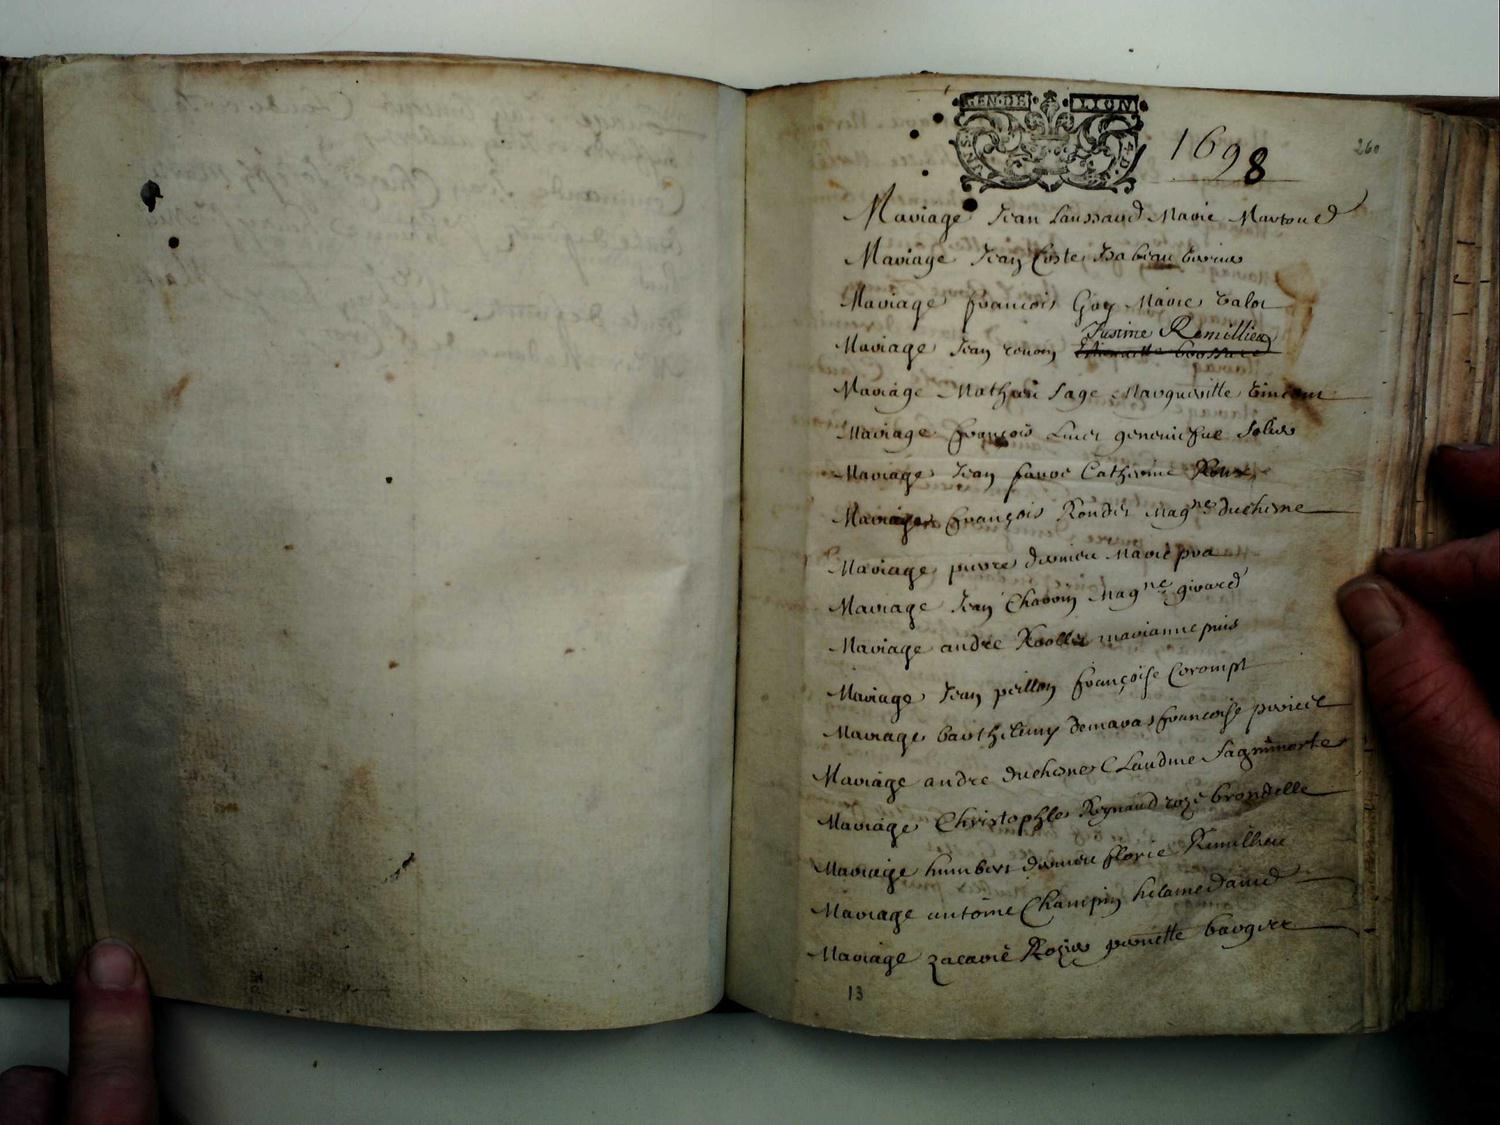 GEN·DE LION
1698
260
Mariage Jean Laussaud Marie Martoud
Mariage Jean Coste Isabeau
Mariage françois Guy Marie valoi
Remillieu
Mariage Jean
Mariage Mathieu sage Margueritte vincent
Mariage françois geneviefue
Mariage Jean favre Catherine Roux
Mariage françois Rondet Magne duchesne
Mariage pierre dernieu Marie pra
Mariage Jean Chavin Magne girard
Mariage andre marianne puis
Mariage Jean peillon françoise Corompt
Mariage barthelemy demaras francoise
Mariage andre duchesne Claudine sagnimorte
Mariage Christophle Reynaud roze brondelle
Mariage humbert dernieu florie Remillieu
Mariage antoine Champin helaine David
Mariage zacarie Rozier pernette
13